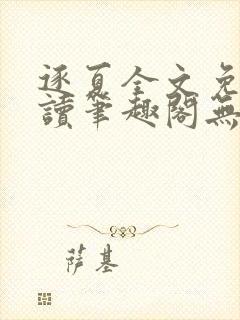 逐夏全文免
讀筆趣閣無
萨基